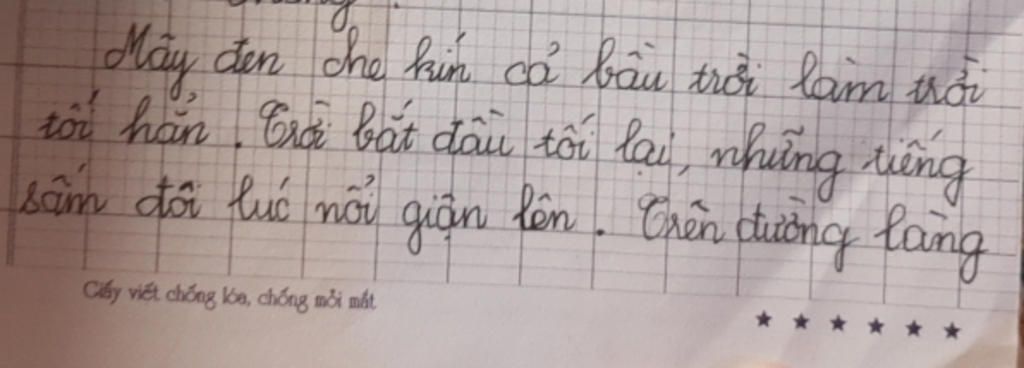 Mây đen che kín cả bầu trời làm trời
tối hẳn. Trời bắt đầu tối lại, những tiếng
sấm đôi lúc nổi giận lên. Trên đường làng
Giấy viết chống lóa, chống mỏi mắt
★ ★ ★ ★ ★ ★